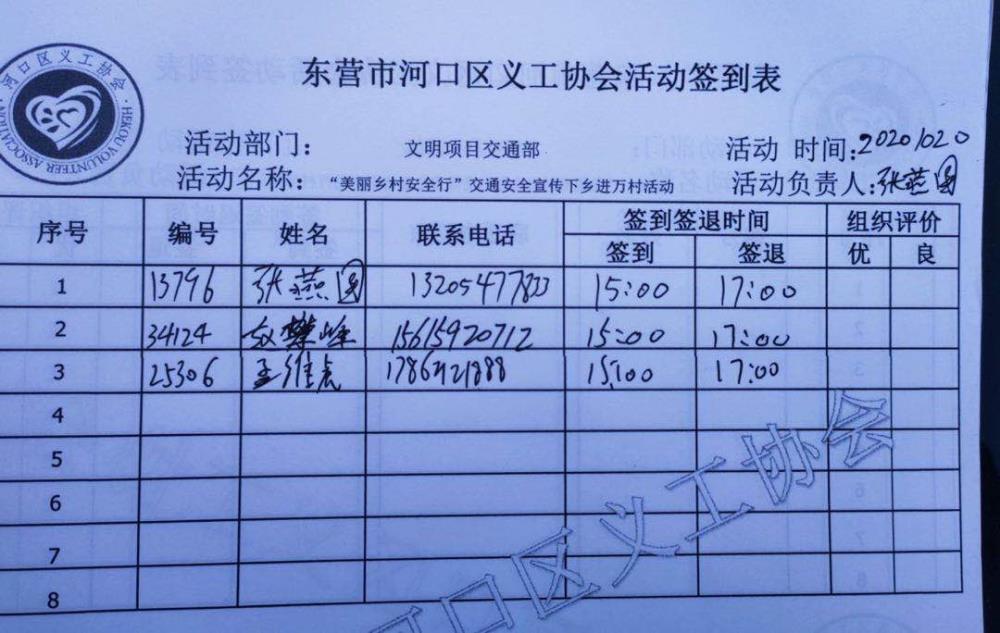 东营市河口区义工协会活动签到表
河口区义工协会
HEKOU VOLUNTEER ASSOCIATION
活动部门： 文明项目交通部 活动 时间：20201020
活动名称： “美丽乡村安全行”交通安全宣传下乡进万村活动 活动负责人：张燕圆
序号 编号 姓名 联系电话 签到签退时间 组织评价
签到 签退 优 良
1 13796 张燕圆 13205477833 15:00 17:00
2 34124 15615920712 15:00 17:00
3 25306 15:00 17:00
4
5
6
7
8
河口区义工协会